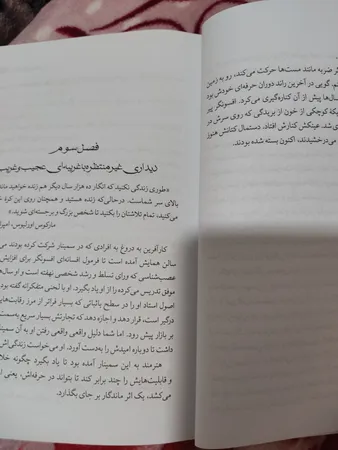 ر ضربه مانند مست‌ها حرکت می‌کند، رو به زمین
م، گویی در آخرین راند دوران حرفه‌ای خودش بود
ال‌ها پیش از آن کناره‌گیری می‌کرد. افسونگر پیر
یکهٔ کوچکی از خون از بریدگی که روی سرش در
ی شد. عینکش کنارش افتاد. دستمال کتانش هنوز
می‌درخشیدند، اکنون بسته شده بودند.
فصل سوم
دیداری غیرمنتظره با غریبه‌ای عجیب و غریب
«طوری زندگی نکنید که انگار ده هزار سال دیگر هم زنده خواهید ماند
بالای سر شماست. درحالی‌که زنده هستید و همچنان روی این کره
می‌کنید، تمام تلاشتان را بکنید تا شخص بزرگ و برجسته‌ای شوید.»
مارکوس اورلیوس، امپرا
کارآفرین به دروغ به افرادی که در سمینار شرکت کرده بودند می
سالن همایش آمده است تا فرمول افسانه‌ای افسونگر برای افزایش
عصب‌شناسی که ورای تسلط و رشد شخصی نهفته است و او سال‌ها
موفق تدریس می‌کرده را از او یاد بگیرد. او با لحنی متفکرانه گفته بود
اصول استاد او را در سطح باثباتی که بسیار فراتر از مرز رقابت‌های
درگیر است، قرار دهد و اجازه دهد که تجارتش بسیار سریع به‌سمت
بر بازار پیش رود. اما شما دلیل واقعی واقعی رفتن او به آن سمینار
داشت تا دوباره امیدش را به‌دست آورد. او می‌خواست زندگی‌اش
هنرمند به این سمینار آمده بود تا یاد بگیرد چگونه خلا
و قابلیت‌هایش را چند برابر کند تا بتواند در حرفه‌اش، یعنی
می‌کشد، یک اثر ماندگار بر جای بگذارد.